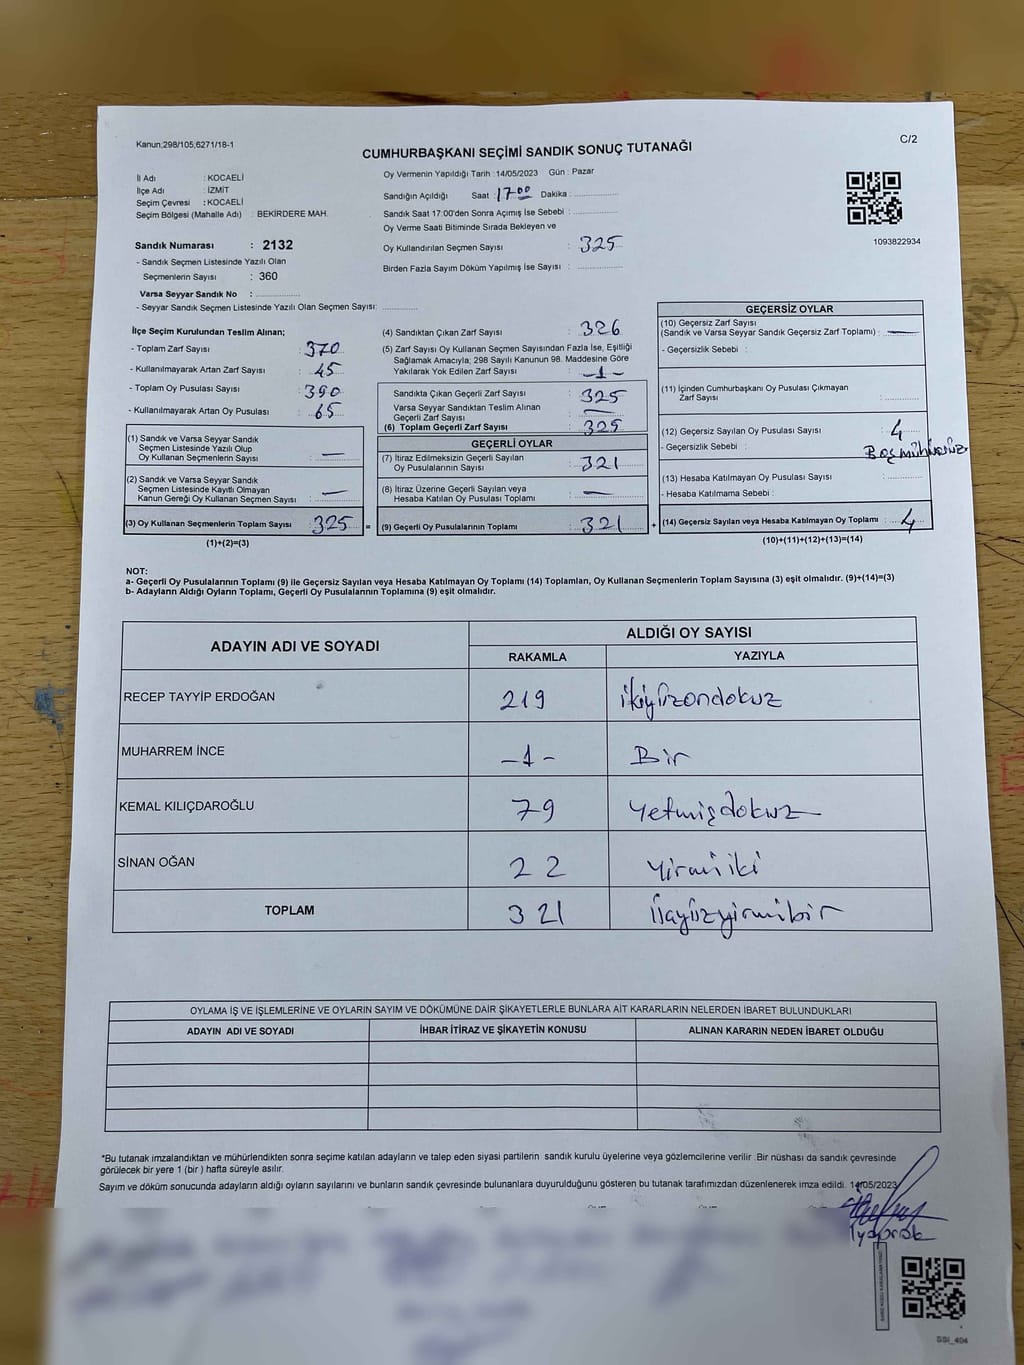 Kanun;298/105;6271/18-1
CUMHURBAŞKANI SEÇİMİ SANDIK SONUÇ TUTANAĞI
C/2
İl Adı : KOCAELİ
İlçe Adı : İZMİT
Seçim Çevresi : KOCAELİ
Seçim Bölgesi (Mahalle Adı) : BEKİRDERE MAH.
Sandık Numarası : 2132
- Sandık Seçmen Listesinde Yazılı Olan
Seçmenlerin Sayısı : 360
Varsa Seyyar Sandık No :
- Seyyar Sandık Seçmen Listesinde Yazılı Olan Seçmen Sayısı:
Oy Vermenin Yapıldığı Tarih :14/05/2023 Gün : Pazar
Sandığın Açıldığı Saat : 17:00 Dakika :
Sandık Saat 17:00'den Sonra Açımış İse Sebebi :
Oy Verme Saati Bitiminde Sırada Bekleyen ve
Oy Kullandırılan Seçmen Sayısı : 325
Birden Fazla Sayım Döküm Yapılmış İse Sayısı :
1093822934
İlçe Seçim Kurulundan Teslim Alınan;
- Toplam Zarf Sayısı : 370
- Kullanılmayarak Artan Zarf Sayısı : 45
- Toplam Oy Pusulası Sayısı : 390
- Kullanılmayarak Artan Oy Pusulası : 65
(1) Sandık ve Varsa Seyyar Sandık
Seçmen Listesinde Yazılı Olup
Oy Kullanan Seçmenlerin Sayısı : —
(2) Sandık ve Varsa Seyyar Sandık
Seçmen Listesinde Kayıtlı Olmayan
Kanun Gereği Oy Kullanan Seçmen Sayısı : —
(3) Oy Kullanan Seçmenlerin Toplam Sayısı : 325 =
(1)+(2)=(3)
(4) Sandıktan Çıkan Zarf Sayısı : 326
(5) Zarf Sayısı Oy Kullanan Seçmen Sayısından Fazla İse, Eşitliği
Sağlamak Amacıyla; 298 Sayılı Kanunun 98. Maddesine Göre
Yakılarak Yok Edilen Zarf Sayısı : -1-
Sandıkta Çıkan Geçerli Zarf Sayısı : 325
Varsa Seyyar Sandıktan Teslim Alınan
Geçerli Zarf Sayısı : —
(6) Toplam Geçerli Zarf Sayısı : 325
GEÇERLİ OYLAR
(7) İtiraz Edilmeksizin Geçerli Sayılan
Oy Pusulalarının Sayısı : 321
(8) İtiraz Üzerine Geçerli Sayılan veya
Hesaba Katılan Oy Pusulası Toplamı : —
(9) Geçerli Oy Pusulalarının Toplamı : 321 +
GEÇERSİZ OYLAR
(10) Geçersiz Zarf Sayısı
(Sandık ve Varsa Seyyar Sandık Geçersiz Zarf Toplamı) : —
- Geçersizlik Sebebi :
(11) İçinden Cumhurbaşkanı Oy Pusulası Çıkmayan
Zarf Sayısı :
(12) Geçersiz Sayılan Oy Pusulası Sayısı : 4
- Geçersizlik Sebebi : Boş mühürsüz
(13) Hesaba Katılmayan Oy Pusulası Sayısı :
- Hesaba Katılmama Sebebi :
(14) Geçersiz Sayılan veya Hesaba Katılmayan Oy Toplamı : 4
(10)+(11)+(12)+(13)=(14)
NOT:
a- Geçerli Oy Pusulalarının Toplamı (9) ile Geçersiz Sayılan veya Hesaba Katılmayan Oy Toplamı (14) Toplamları, Oy Kullanan Seçmenlerin Toplam Sayısına (3) eşit olmalıdır. (9)+(14)=(3)
b- Adayların Aldığı Oyların Toplamı, Geçerli Oy Pusulalarının Toplamına (9) eşit olmalıdır.
ADAYIN ADI VE SOYADI ALDIĞI OY SAYISI
RAKAMLA YAZIYLA
RECEP TAYYİP ERDOĞAN 219 ikiyüzondokuz
MUHARREM İNCE -1- Bir
KEMAL KILIÇDAROĞLU 79 Yetmişdokuz
SİNAN OĞAN 22 Yirmiiki
TOPLAM 321 üçyüzyirmibir
OYLAMA İŞ VE İŞLEMLERİNE VE OYLARIN SAYIM VE DÖKÜMÜNE DAİR ŞİKAYETLERLE BUNLARA AİT KARARLARIN NELERDEN İBARET BULUNDUKLARI
ADAYIN ADI VE SOYADI İHBAR İTİRAZ VE ŞİKAYETİN KONUSU ALINAN KARARIN NEDEN İBARET OLDUĞU
*Bu tutanak imzalandıktan ve mühürlendikten sonra seçime katılan adayların ve talep eden siyasi partilerin sandık kurulu üyelerine veya gözlemcilerine verilir .Bir nüshası da sandık çevresinde
görülecek bir yere 1 (bir ) hafta süreyle asılır.
Sayım ve döküm sonucunda adayların aldığı oyların sayılarını ve bunların sandık çevresinde bulunanlara duyurulduğunu gösteren bu tutanak tarafımızdan düzenlenerek imza edildi. 14/05/2023
SSI_404